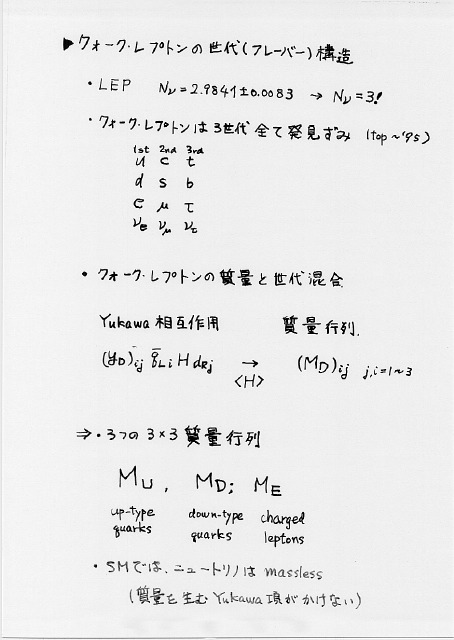 ▶ クォーク・レプトンの世代(フレーバー)構造
・LEP Nν=2.9841±0.0083 → Nν=3!
・クォーク・レプトンは3世代全て発見ずみ (top ~'95)
1st 2nd 3rd
u c t
d s b
e μ τ
νe νμ ντ
・クォーク・レプトンの質量と世代混合
Yukawa 相互作用 質量行列.
(yD)ij q̄Li H dRj → (MD)ij j,i=1~3
<H>
⇒・3つの3×3 質量行列
MU, MD; ME
up-type down-type charged
quarks quarks leptons
・SMでは、ニュートリノは massless
(質量を生む Yukawa 項がかけない)